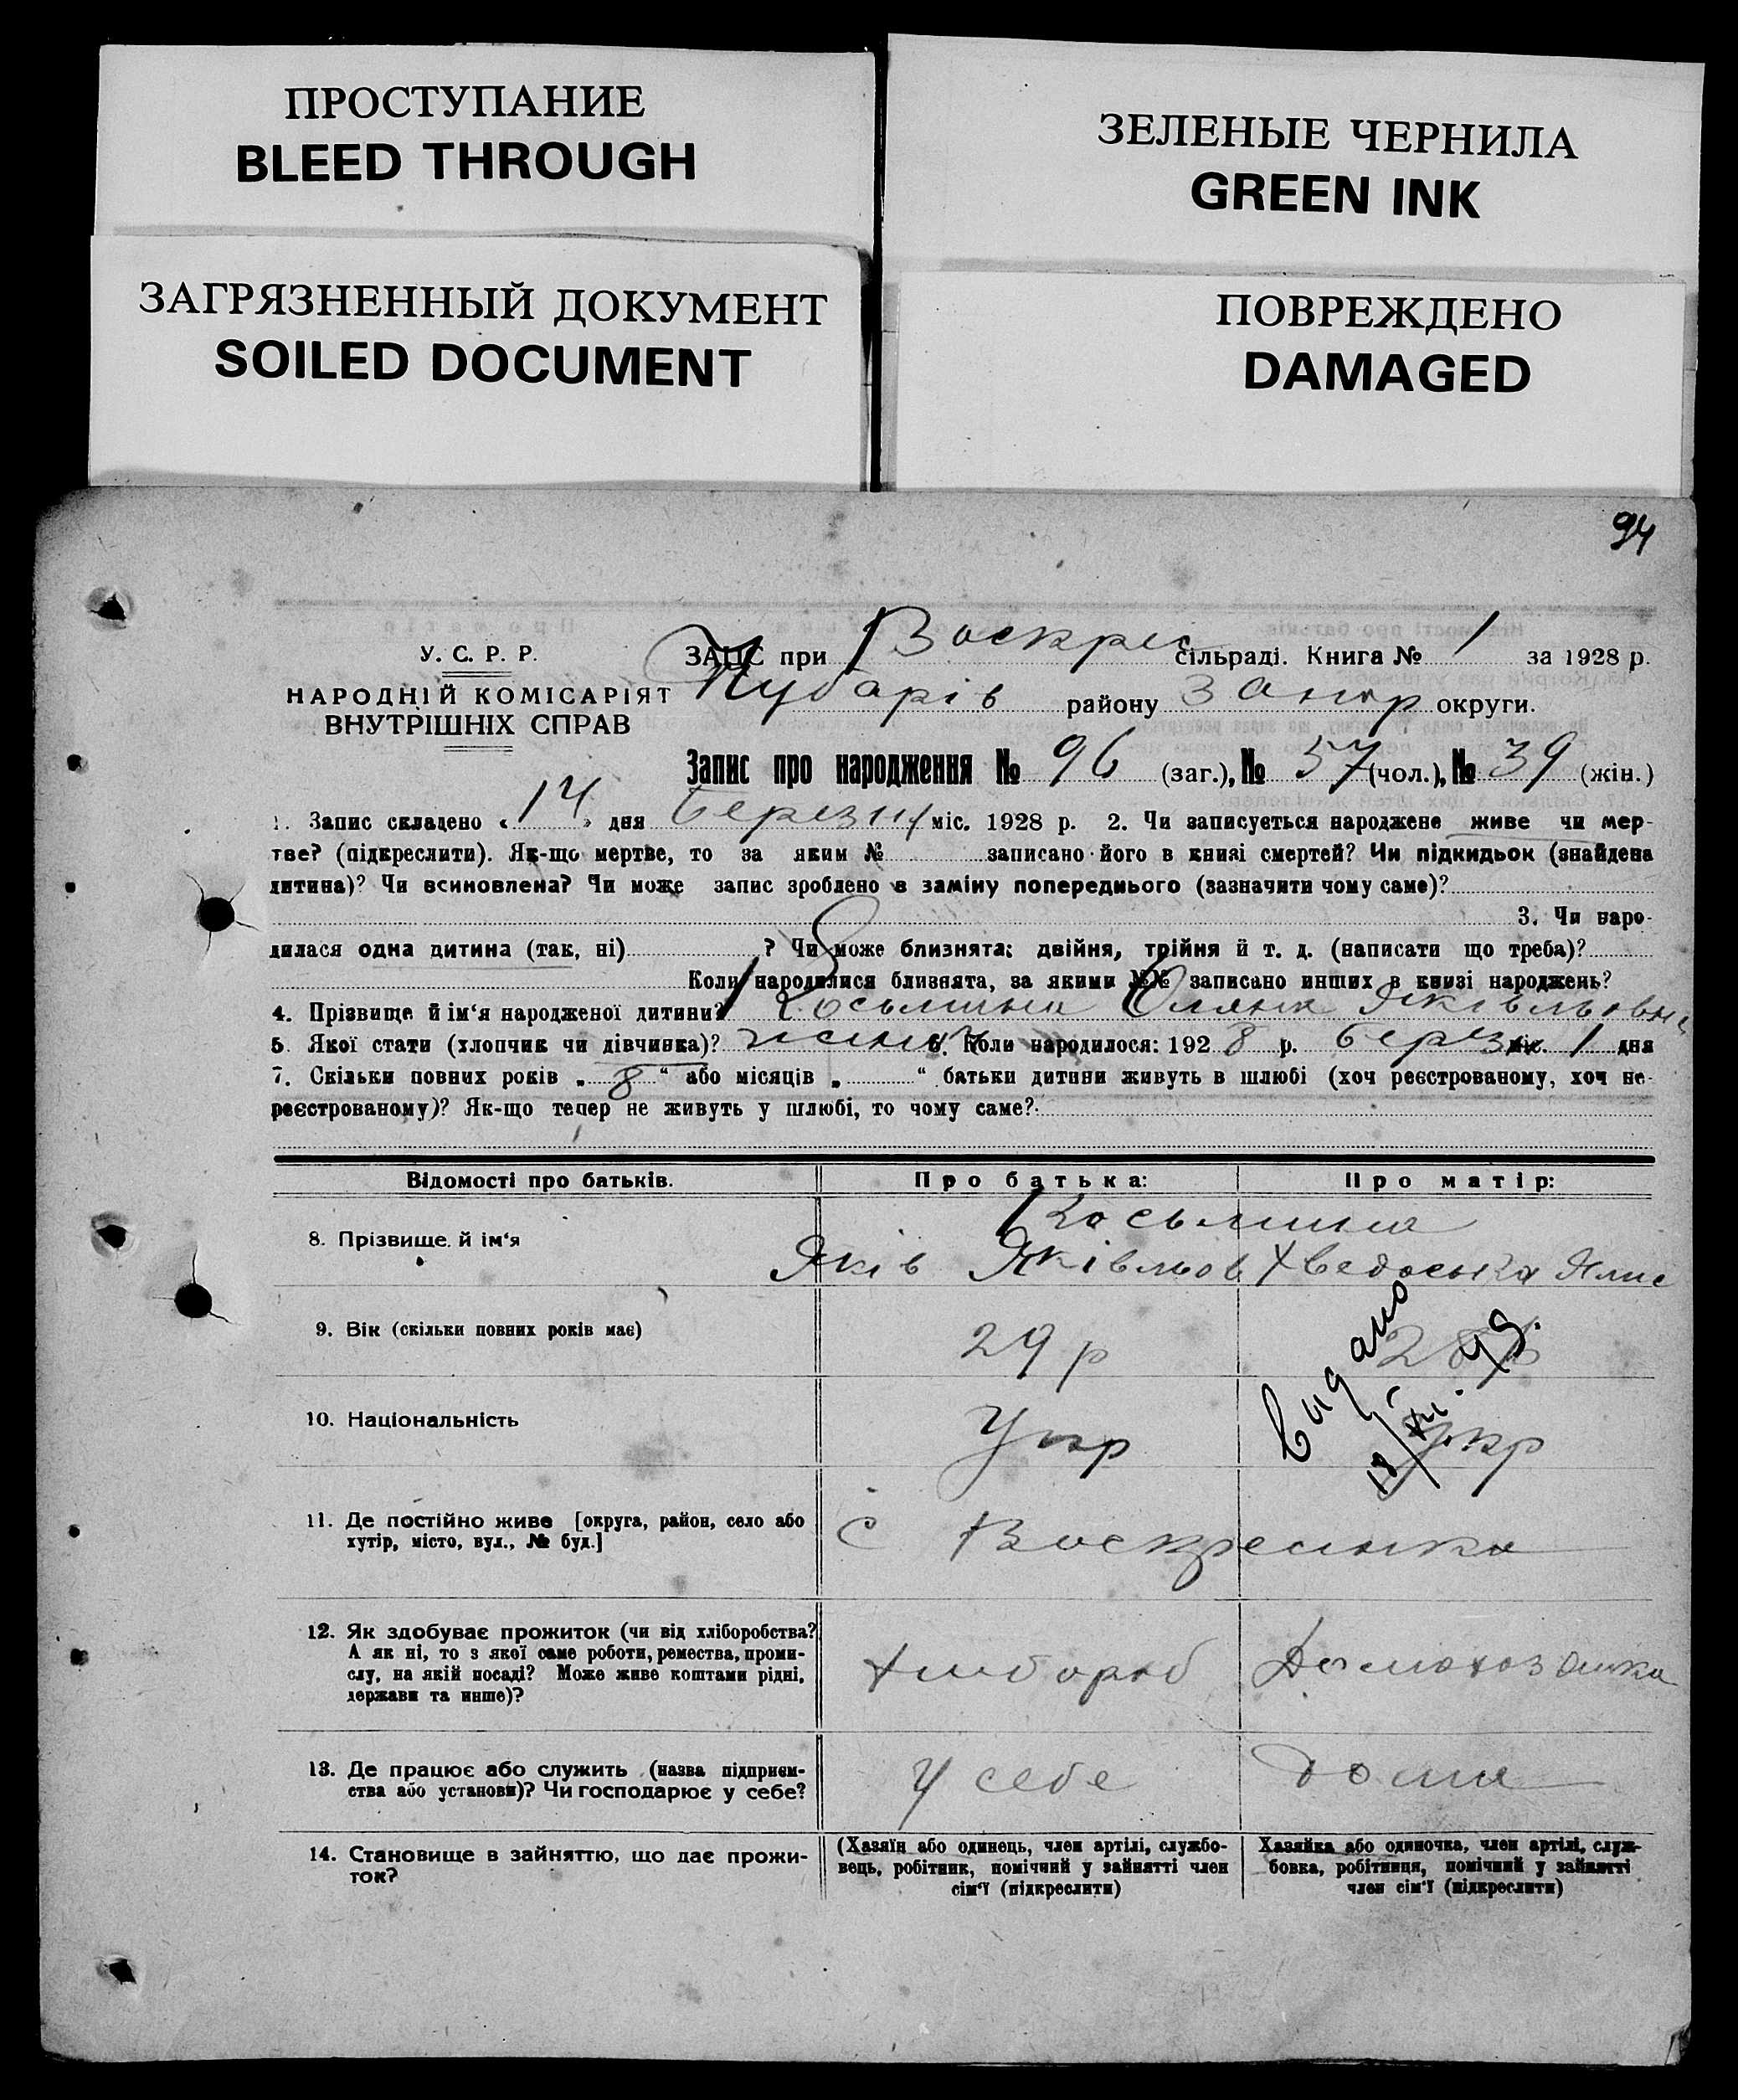 ПРОСТУПАНИЕ
BLEED THROUGH
ЗЕЛЕНЫЕ ЧЕРНИЛА
GREEN INK
ЗАГРЯЗНЕННЫЙ ДОКУМЕНТ
SOILED DOCUMENT
ПОВРЕЖДЕНО
DAMAGED
94
У. С. Р. Р.
НАРОДНІЙ КОМІСАРІЯТ
ВНУТРІШНІХ СПРАВ
ЗАПС при Воскрес сільраді. Книга № 1 за 1928 р.
району Запор округи.
Запис про народження № 96 (заг.), № 57 (чол.), № 39 (жін.)
1. Запис складено « 14 » дня березня міс. 1928 р. 2. Чи записується народжене живе чи мер-
тве? (підкреслити). Як-що мертве, то за яким № записано його в книзі смертей? Чи підкидьок (знайдена
дитина)? Чи всиновлена? Чи може запис зроблено в заміну попереднього (зазначити чому саме)?
3. Чи наро-
дилася одна дитина (так, ні) ? Чи може близнята: двійня, трійня й т. д. (написати що треба)?
Коли народилися близнята, за якими №№ записано инших в книзі народжень?
4. Прізвище й ім‘я народженої дитини? Косьмина Оляна Яківльовна
5. Якої статі (хлопчик чи дівчинка)? жіноч 6. Коли народилося: 1928 р. берез міс. 1 дня
7. Скільки повних років „ 8 “ або місяців „ “ батьки дитини живуть в шлюбі (хоч реєстрованому, хоч не-
реєстрованому)? Як-що тепер не живуть у шлюбі, то чому саме?
Відомості про батьків. Про батька: Про матір:
Косьмина
8. Прізвище й ім‘я Яків Яківльов Хведоська
9. Вік (скільки повних років має) 29 р
10. Національність Укр Укр
Видано
18/XII. 49.
11. Де постійно живе [округа, район, село або
хутір, місто, вул., № буд.] с Воскресенка
12. Як здобуває прожиток (чи від хліборобства?
А як ні, то з якої саме роботи, ремества, проми-
слу, на якій посаді? Може живе коштами рідні,
держави та инше)?
хлібороб Домохозяйка
13. Де працює або служить (назва підприєм-
ства або установи)? Чи господарює у себе?
У себе дома
14. Становище в зайняттю, що дає прожи-
ток?
(Хазяїн або одинець, член артілі, службо-
вець, робітник, помічний у зайнятті член
сім‘ї (підкреслити)
Хазяйка або одиночка, член артілі, служ-
бовка, робітниця, помічний у зайнятті
член сім‘ї (підкреслити)